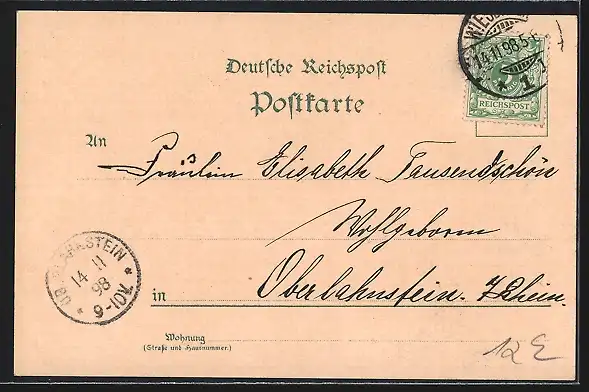 WIESB
14.11.98.5-6
1
REICHSPOST
Deutsche Reichspost
Postkarte
An
Fräulein Elisabeth Tausendschön
Wohlgeboren
OBERLAHNSTEIN
14 11
98
9-10V.
in Oberlahnstein. Rhein.
Wohnung
(Straße und Hausnummer.)
12 E